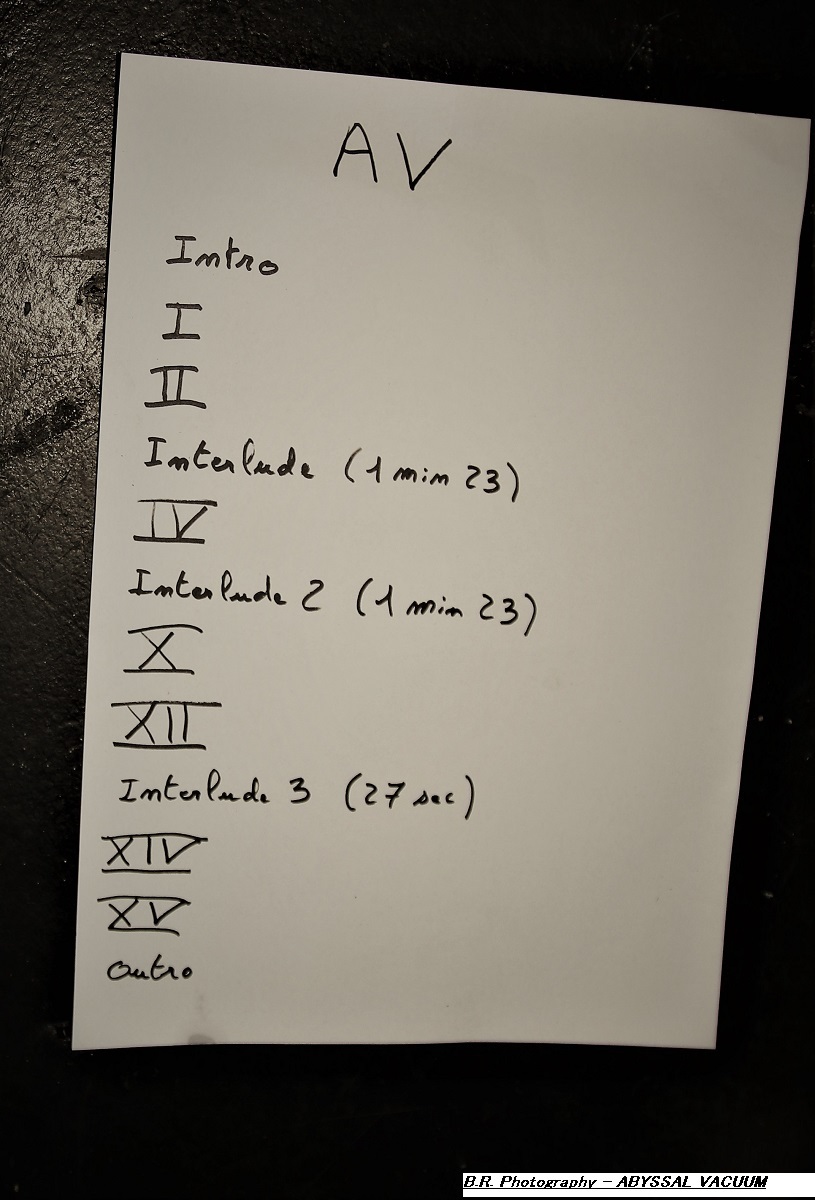 AV
Intro
I
II
Interlude (1 min 23)
IV
Interlude 2 (1 min 23)
X
XII
Interlude 3 (27 sec)
XIV
XV
Outro
B.R. Photography - ABYSSAL VACUUM